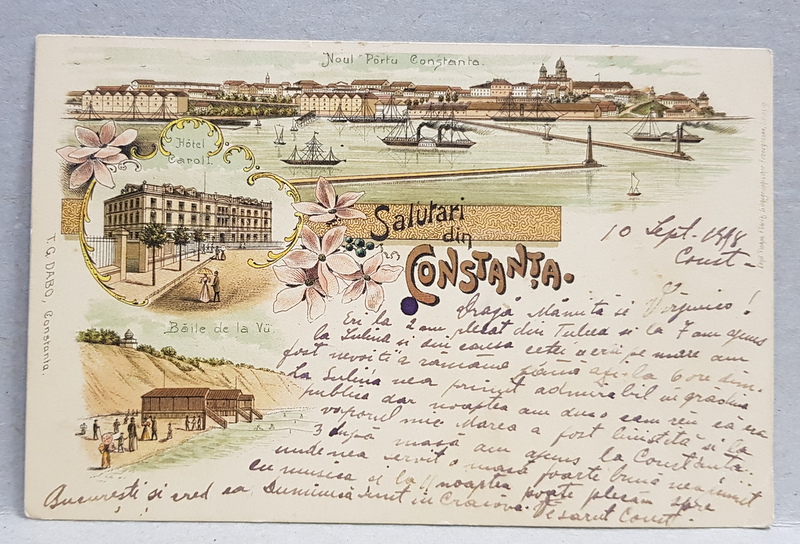 Noul Portu Constanta.
Hôtel
Caroll.
Salutari
din
CONSTANȚA.
Băile de la Vii
T. G. DABO, Constanta
10 Sept. 1898
Const-
Dragă Mămiță și Virginico!
Eri la 2 am plecat din Tulcea și la 7 am ajuns
la Sulina și din causa cetei a erii pe mare am
fost nevoiți a rămâne până azi la 6 ore dim.
La Sulina ne a primit admirabil in gradina
publica dar noaptea am dus o cam rĕu ca era
vaporul mic. Marea a fost linistită și la
3 după masă am ajuns la Constanța.
unde nea servit o masă foarte bună
cu musica si la noaptea poate plecăm spre
București și cred ca Duminică sunt in Craiova. Ve sarut Const.